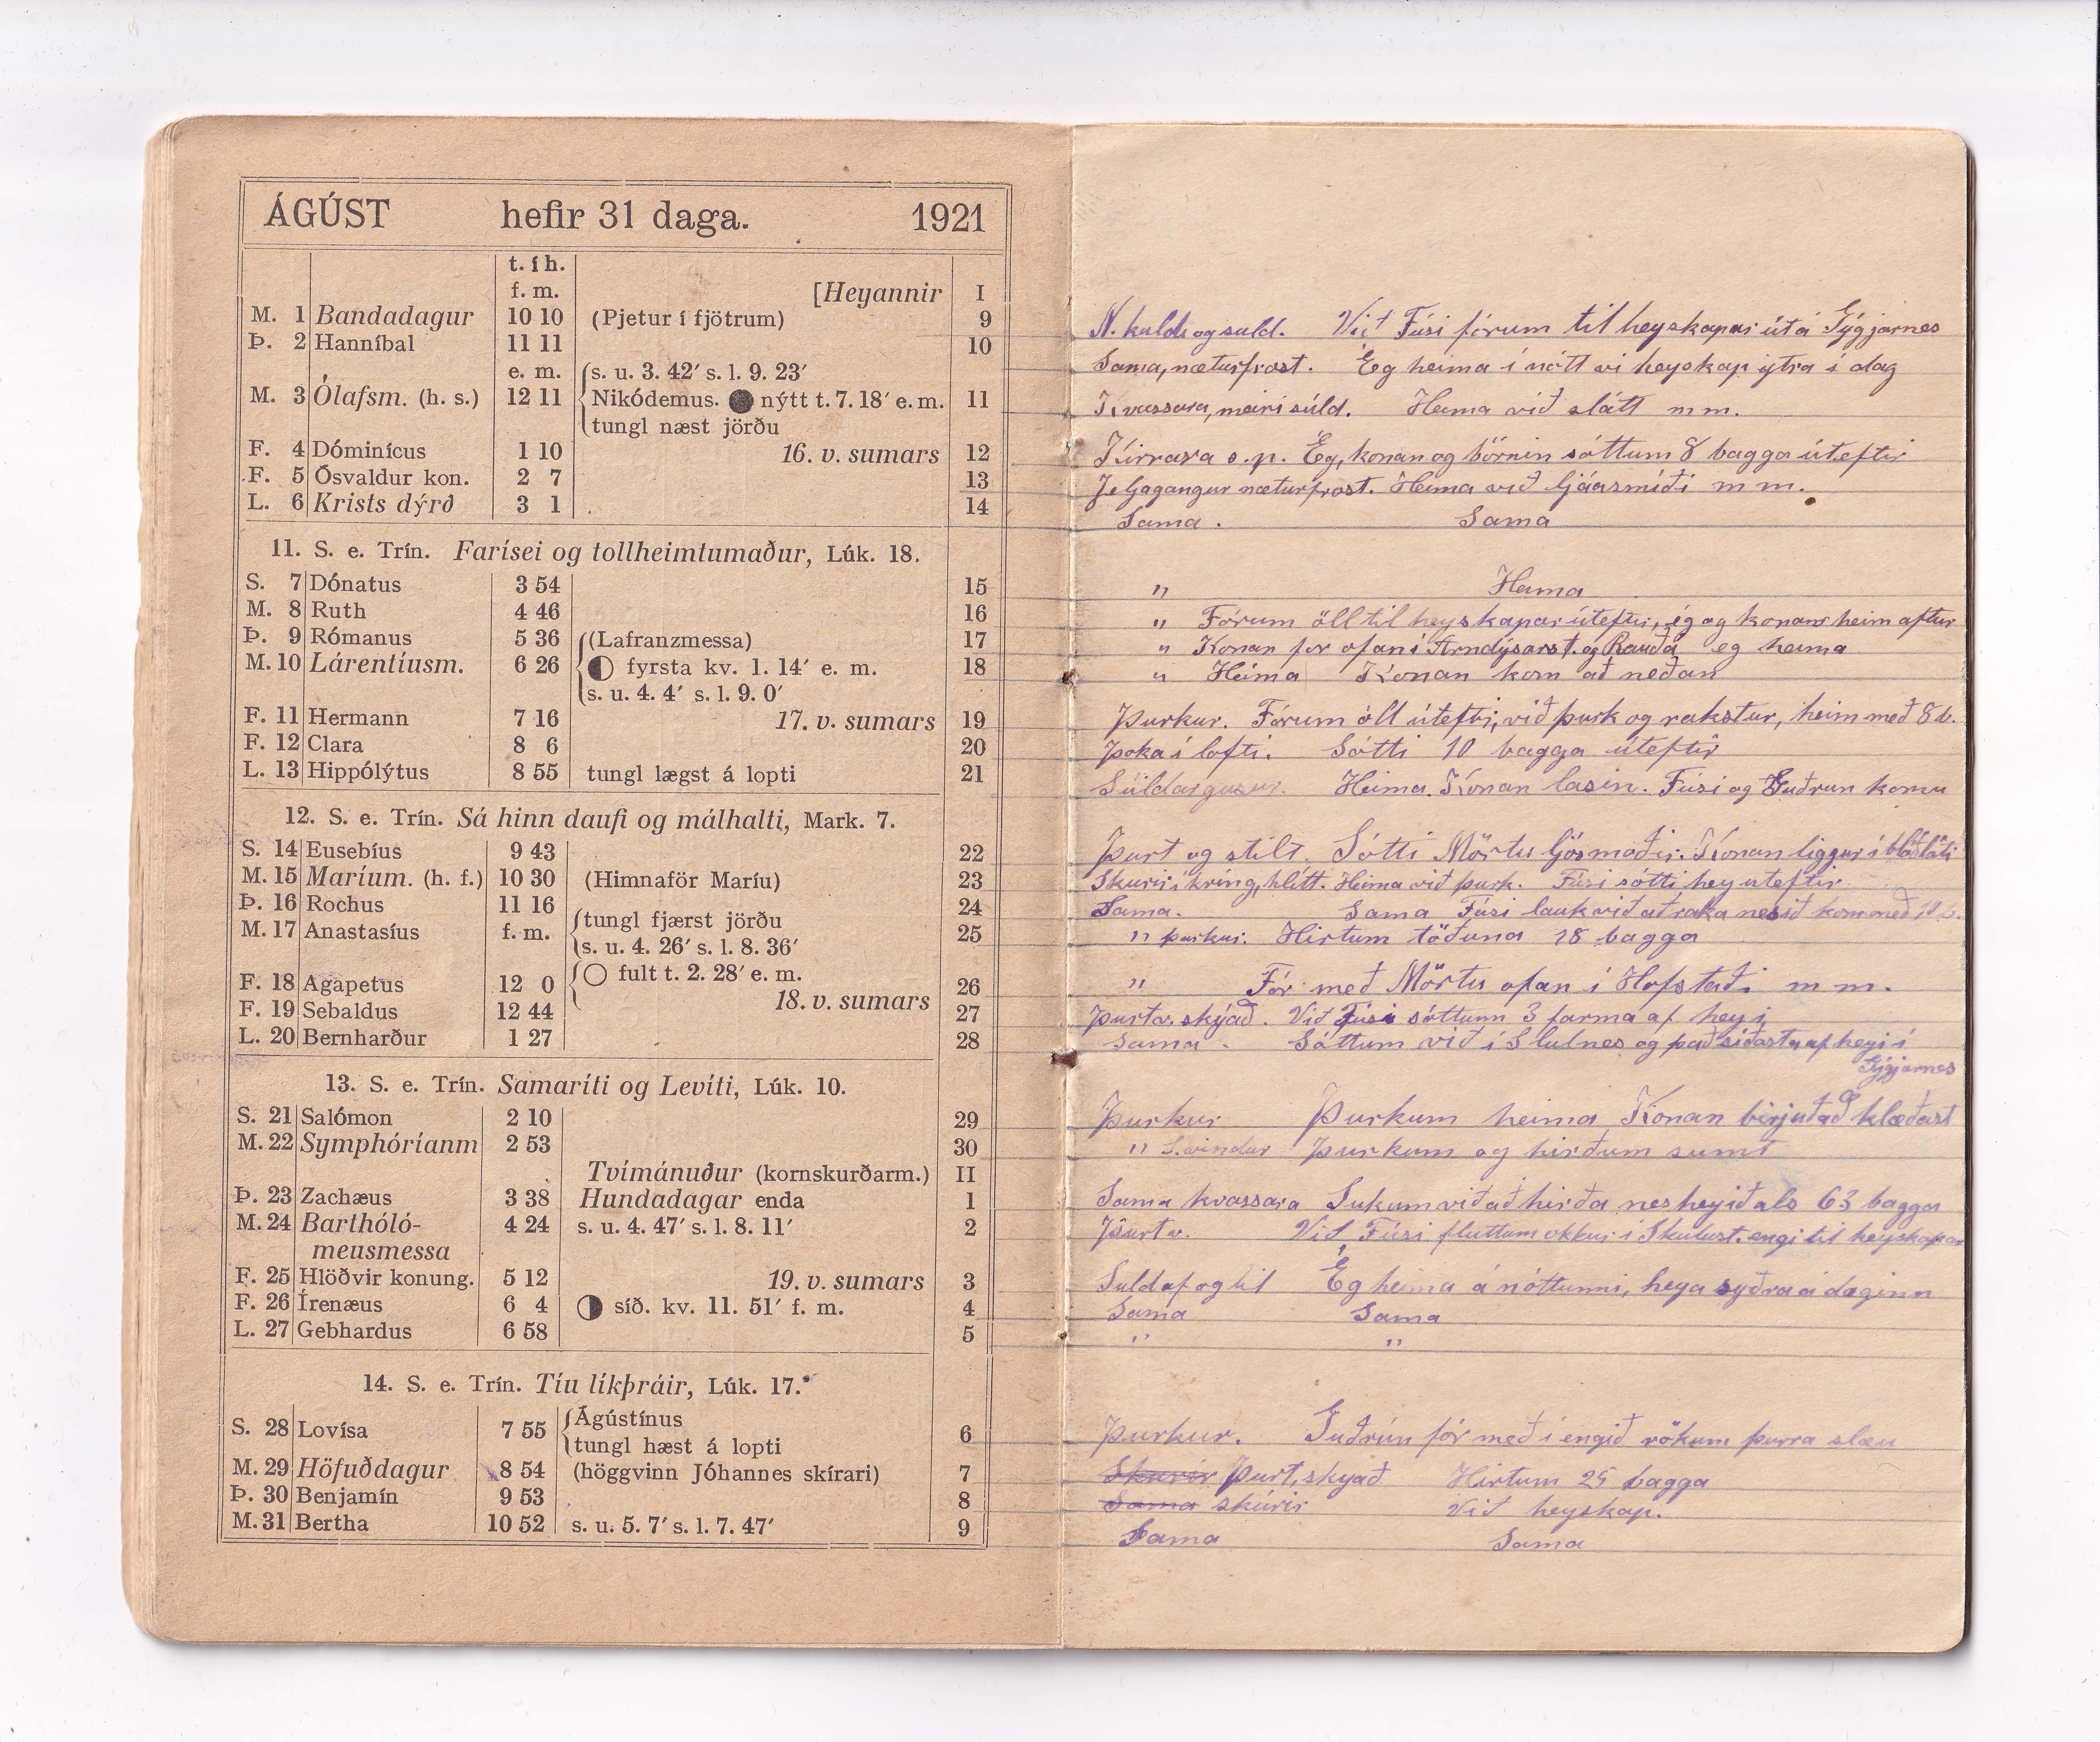 ÁGÚST hefir 31 daga. 1921
t. í h.
f. m. [Heyannir I
M. 1 Bandadagur 10 10 (Pjetur í fjötrum) 9
Þ. 2 Hanníbal 11 11 10
e. m. s. u. 3. 42′ s. l. 9. 23′
M. 3 Ólafsm. (h. s.) 12 11 Nikódemus. nýtt t. 7. 18′ e. m. 11
tungl næst jörðu
F. 4 Dóminícus 1 10 16. v. sumars 12
F. 5 Ósvaldur kon. 2 7 13
L. 6 Krists dýrð 3 1 14
11. S. e. Trín. Farísei og tollheimtumaður, Lúk. 18.
S. 7 Dónatus 3 54 15
M. 8 Ruth 4 46 16
Þ. 9 Rómanus 5 36 (Lafranzmessa) 17
M. 10 Lárentíusm. 6 26 fyrsta kv. 1. 14′ e. m. 18
s. u. 4. 4′ s. l. 9. 0′
F. 11 Hermann 7 16 17. v. sumars 19
F. 12 Clara 8 6 20
L. 13 Hippólýtus 8 55 tungl lægst á lopti 21
12. S. e. Trín. Sá hinn daufi og málhalti, Mark. 7.
S. 14 Eusebíus 9 43 22
M. 15 Maríum. (h. f.) 10 30 (Himnaför Maríu) 23
Þ. 16 Rochus 11 16 tungl fjærst jörðu 24
M. 17 Anastasíus f. m. s. u. 4. 26′ s. l. 8. 36′ 25
F. 18 Agapetus 12 0 fult t. 2. 28′ e. m. 26
F. 19 Sebaldus 12 44 18. v. sumars 27
L. 20 Bernharður 1 27 28
13. S. e. Trín. Samaríti og Levíti, Lúk. 10.
S. 21 Salómon 2 10 29
M. 22 Symphóríanm 2 53 30
Tvímánuður (kornskurðarm.) II
Þ. 23 Zachæus 3 38 Hundadagar enda 1
M. 24 Barthóló- 4 24 s. u. 4. 47′ s. l. 8. 11′ 2
meusmessa
F. 25 Hlöðvir konung. 5 12 19. v. sumars 3
F. 26 Írenæus 6 4 síð. kv. 11. 51′ f. m. 4
L. 27 Gebhardus 6 58 5
14. S. e. Trín. Tíu líkþráir, Lúk. 17.
S. 28 Lovísa 7 55 Ágústínus 6
tungl hæst á lopti
M. 29 Höfuðdagur 8 54 (höggvinn Jóhannes skírari) 7
Þ. 30 Benjamín 9 53 8
M. 31 Bertha 10 52 s. u. 5. 7′ s. l. 7. 47′ 9
N. kuldi og suld. Við Fúsi fórum til heyskapar út á Gýgjarnes
Sama, næturfrost. Ég heima í nótt við heyskap ytra í dag
Kvassara, meiri súld. Heima við slátt m m.
Kirrara s. p. Ég, konan og börnin sóttum 8 bagga úteftir
Jeljagangur næturfrost. Heima við ljáasmíði m m.
Sama. Sama
" Heima
" Fórum öll til heyskapar úteftir, ég og konan heim aftur
" Konan fór ofan í Arndýsarst. og Rauðá eg heima
" Heima Konan kom að neðan
Þurkur. Fórum öll úteftir, við þurk og rakstur, heim með 8 b.
Þoka í lofti. Sótti 10 bagga úteftir
Súldargusur. Heima. Konan lasin. Fúsi og Guðrun komu
Þurt og stilt. Sótti Mörtu ljósmóðir. Konan liggur í blóðláti
Skurir í kring, hlítt. Heima við þurk. Fúsi sótti hey uteftir
Sama. Sama Fúsi lauk við að raka nesið kom með 10 b.
" þurkur. Hirtum töðuna 18 bagga
" Fór með Mörtu ofan í Hofstaði m m.
Þurt v. skýað. Við Fúsi sóttum 3 farma af heyi
Sama. Sóttum við í Slútnes og það siðasta af heyi í
Gýgjarnes
Þurkur Þurkum heima Konan birjuð að klæðast
" S. vindur Þurkum og hirðum sumt
Sama kvassara Lukum við að hirða nesheyið als 63 bagga
Þurt v. Við Fúsi fluttum okkur í Skutust. engi til heyskapar
Suld af og til Ég heima á nóttunni, heya syðra á daginn
Sama Sama
" "
Þurkur. Guðrún fór með í engið rökum þurra slæu
Skurir Þurt, skyað Hirtum 25 bagga
Sama skúrir Við heyskap.
Sama Sama